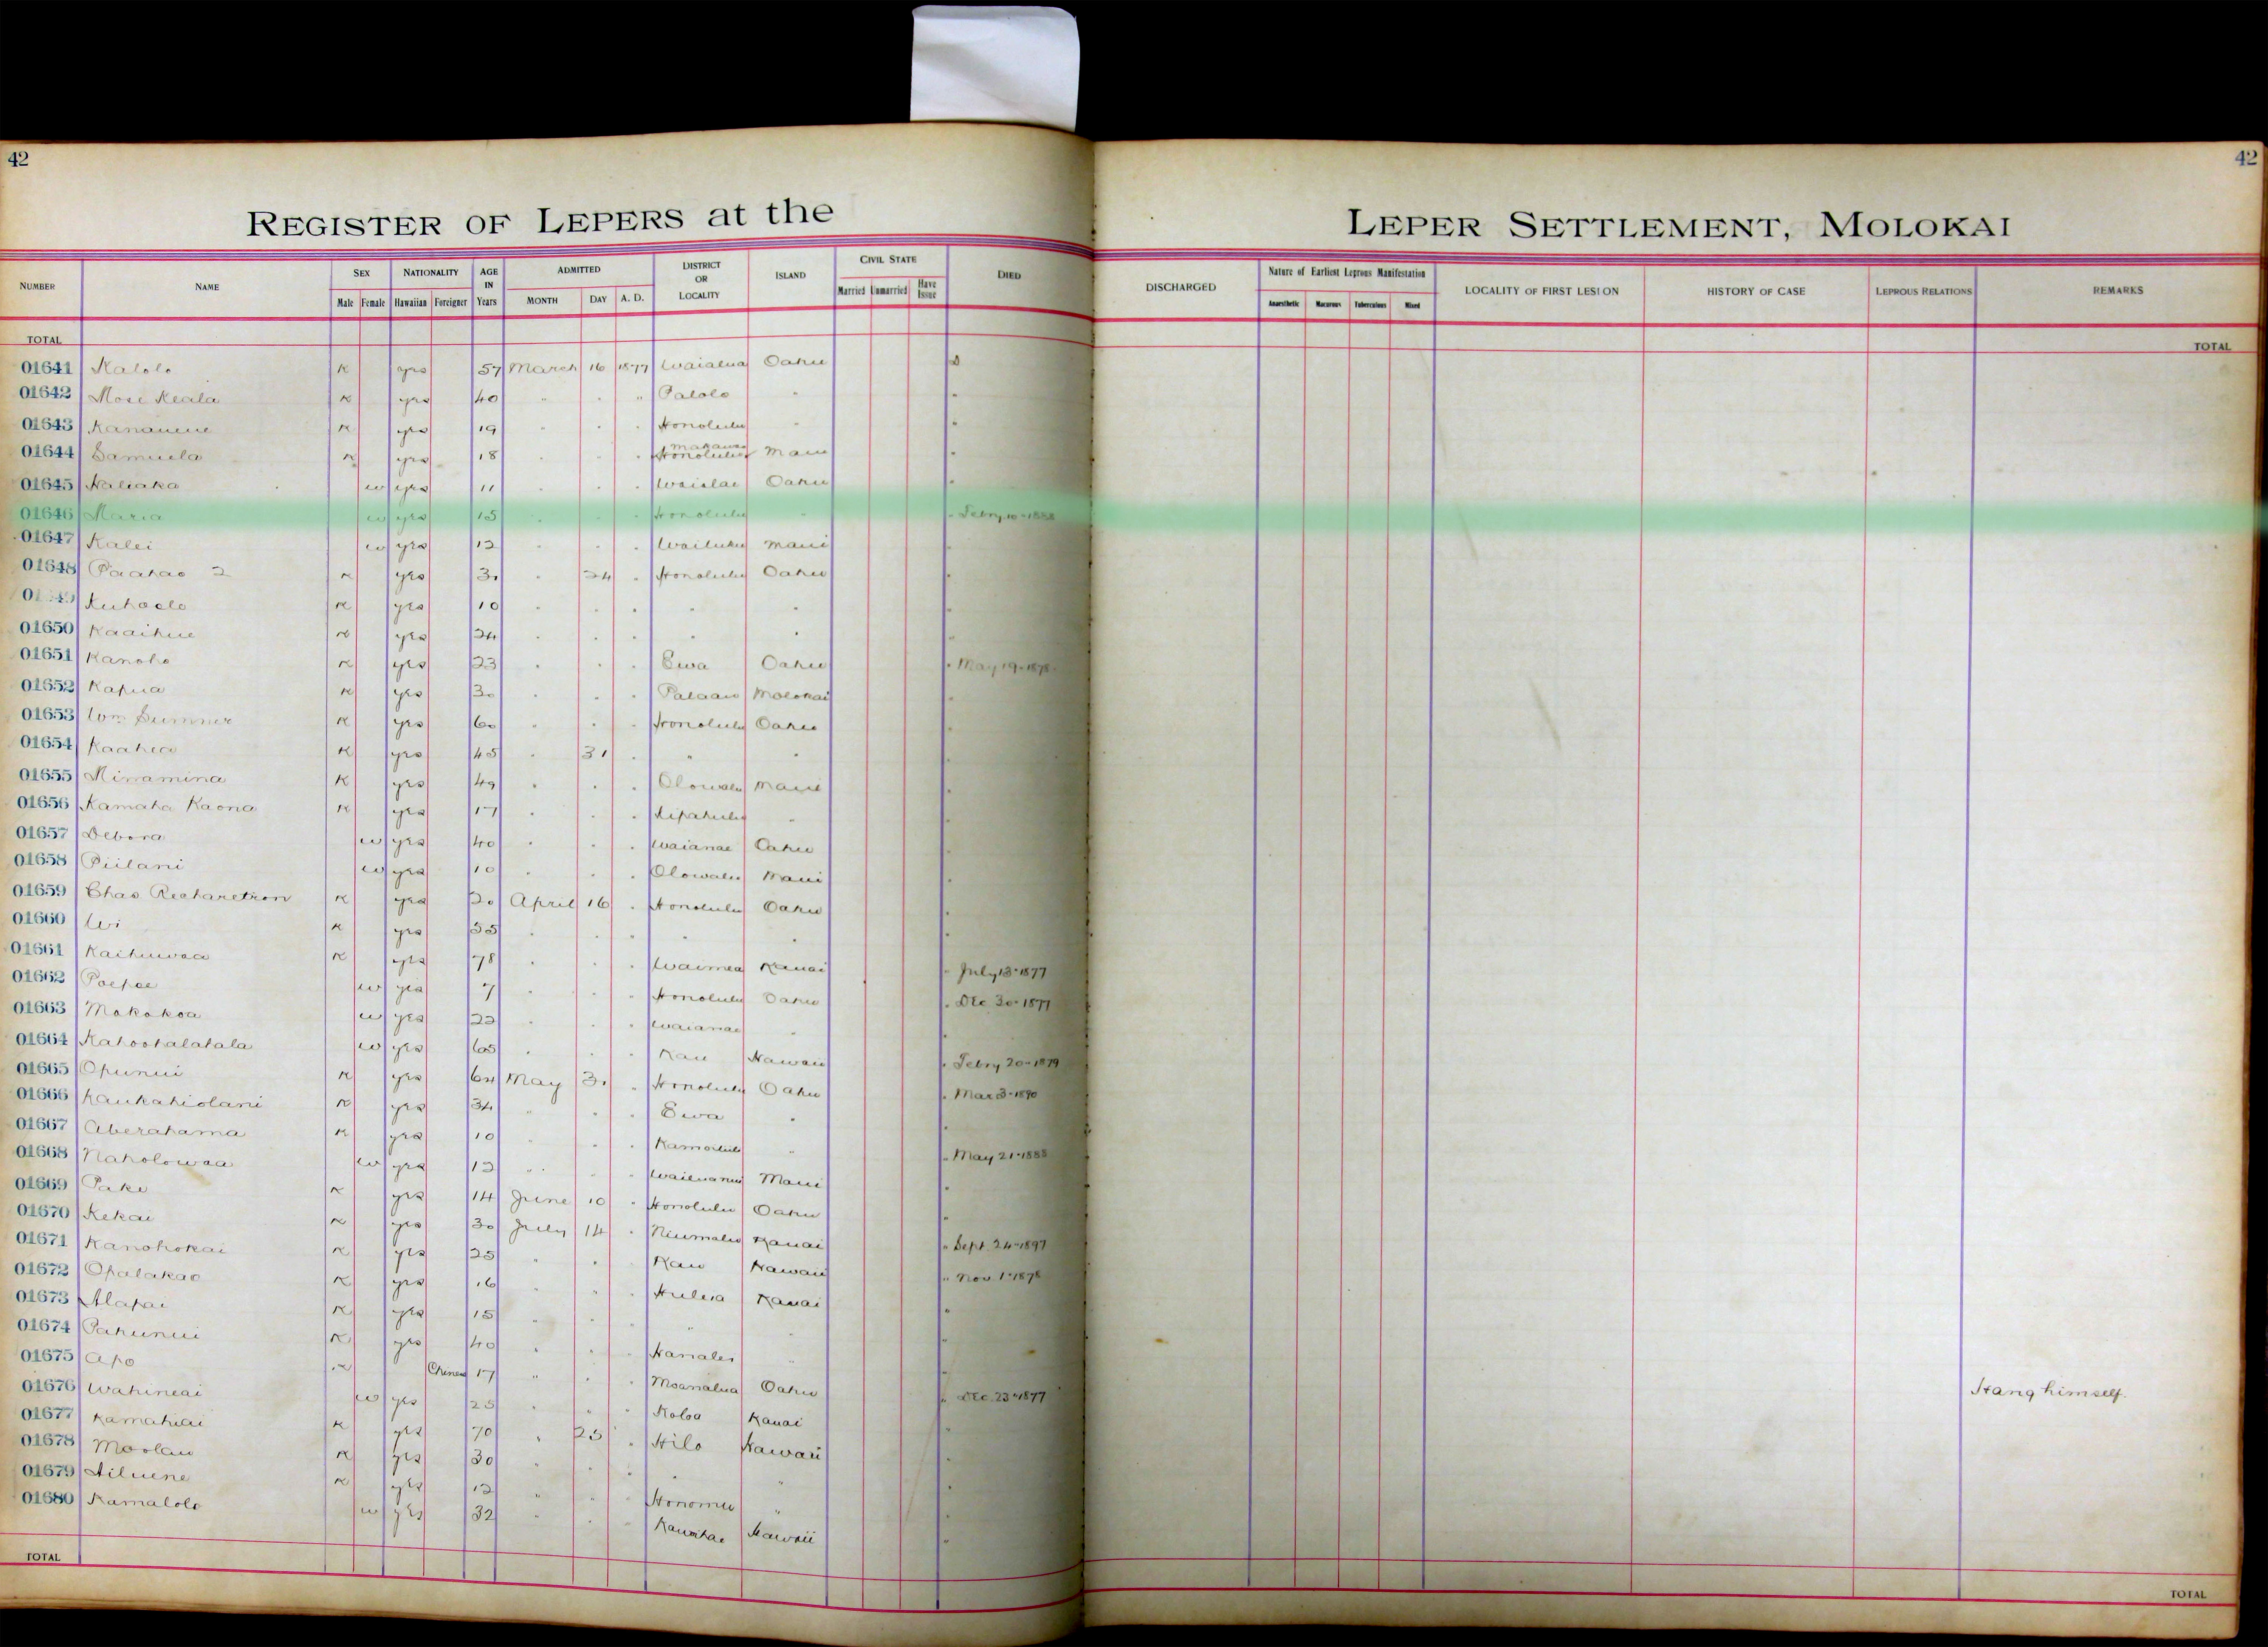 42 42
REGISTER OF LEPERS at the LEPER SETTLEMENT, MOLOKAI
NUMBER NAME SEX NATIONALITY AGE IN Years ADMITTED DISTRICT OR LOCALITY ISLAND CIVIL STATE DIED DISCHARGED Nature of Earliest Leprous Manifestation LOCALITY OF FIRST LESION HISTORY OF CASE LEPROUS RELATIONS REMARKS
Male Female Hawaiian Foreigner MONTH DAY A. D. Married Unmarried Have Issue Anaesthetic Macurous Tuberculous Mixed
TOTAL TOTAL
01641 Kalolo K yes 57 March 16 1877 Waialua Oahu D
01642 Mose Keala K yes 40 " " " Palolo " "
01643 K yes 19 " " " Honolulu " "
01644 Samuela K yes 18 " " " Honolulu Makawao Maui "
01645 Naliaka w yes 11 " " " Waialae Oahu "
01646 Maria w yes 15 " " " Honolulu " " Febry 10-1888
01647 Kalei w yes 12 " " " Wailuku Maui "
01648 Paahao 2 K yes 30 " 24 " Honolulu Oahu "
K yes 10 " " " " " "
01650 Kaaihue K yes 24 " " " " " "
01651 Kanoho K yes 23 " " " Ewa Oahu " May 19-1878
01652 Kapua K yes 30 " " " Palaau Molokai "
01653 Wm Sumner K yes 60 " " " Honolulu Oahu "
01654 Kaahea K yes 45 " 31 " " " "
01655 Minamina K yes 49 " " " Olowalu Maui "
01656 Kamaka Kaona K yes 17 " " " Kipahulu " "
01657 Debora w yes 40 " " " Waianae Oahu "
01658 Piilani w yes 10 " " " Olowalu Maui "
01659 Chas Richardson K yes 20 April 16 " Honolulu Oahu "
01660 Wi K yes 55 " " " " " "
01661 Kaihuwaa K yes 78 " " " Waimea Kauai " July 13-1877
01662 Poepoe w yes 7 " " " Honolulu Oahu " Dec 30-1877
01663 Makakoa w yes 22 " " " Waianae " "
01664 Kahoohalahala w yes 65 " " " Kau Hawaii " Febry 20-1879
01665 Opunui K yes 64 May 31 " Honolulu Oahu " Mar 3-1890
01666 Kaukahiolani K yes 34 " " " Ewa " "
01667 Aberahama K yes 10 " " " Kamoiliili " " May 21-1888
01668 Naholowaa w yes 12 " " " Wailuanui Maui "
01669 Pake K yes 14 June 10 " Honolulu Oahu "
01670 Kekai K yes 30 July 14 " Niumalu Kauai " Sept 24-1897
01671 Kanohokai K yes 25 " " " Kau Hawaii " Nov 1-1878
01672 Opalakao K yes 16 " " " Huleia Kauai "
01673 Alapai K yes 15 " " " " " "
01674 Pahunui K yes 40 " " " Hanalei " "
01675 Apo K Chinese 17 " " " Moanalua Oahu " Dec 23-1877 Hang himself.
01676 Wahineai w yes 25 " " " Koloa Kauai "
01677 Kamahiai K yes 70 " 25 " Hilo Hawaii "
01678 Moolau K yes 30 " " " " " "
01679 K yes 12 " " " Honomu " "
01680 Kamalolo w yes 32 " " " Kawaihae Hawaii "
TOTAL TOTAL